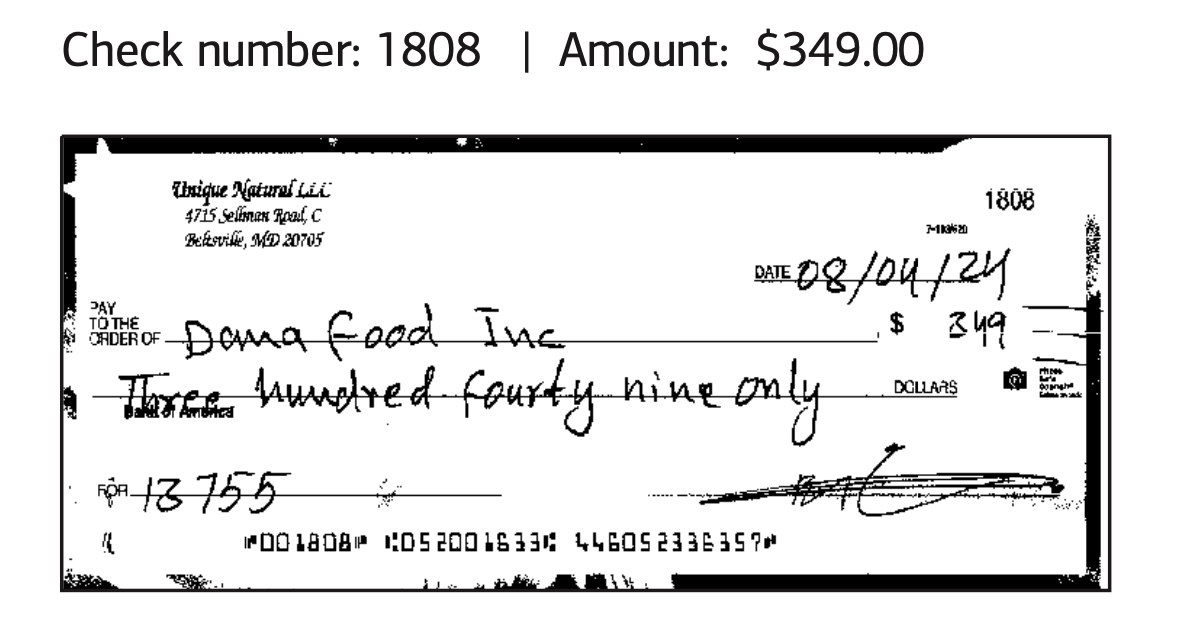 Check number: 1808 | Amount: $349.00
Unique Natural LLC
4715 Sellman Road, C
Beltsville, MD 20705
1808
DATE 08/04/24
PAY
TO THE
ORDER OF Dana Food Inc $ 349
Three hundred fourty nine only DOLLARS
Bank of America
FOR 13755